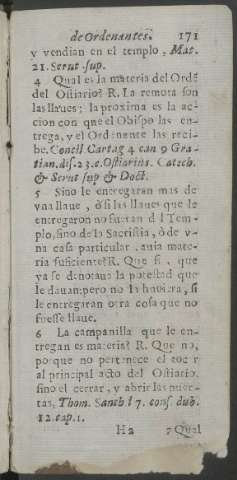 de Ordenantes. 171
y vendian en el templo, Mat.
21. Scrut. sup.
4 Qual es la materia del Ordē
del Ostiario? R. La remota son
las llaues; la proxima es la ac-
cion con que el Obispo las en-
trega, y el Ordenante las reci-
be. Concil Cartag 4 can 9 Gra-
tian. dis. 23. c. Ostiarius. Catech.
& Scrut sup & Doct.
5 Sino le entregaran mas de
vna llaue, ò si las llaues que le
entregaron no fueran d l Tem-
plo, sino de la Sacristia, ò de v-
na casa particular, auia mate-
ria suficiente? R. Que si, que
ya se denotaua la potestad que
le dauan; pero no la huviera, si
le entregaran otra cosa que no
fuesse llaue.
6 La campanilla que le en-
tregan es materia? R. Que no,
porque no pertenece el toc r
al principal acto del Ostiario,
sino el cerrar, y abrir las puer-
tas, Thom. Sanch l 7. cons. dub.
12. cap. 1.
H2 7 Qual